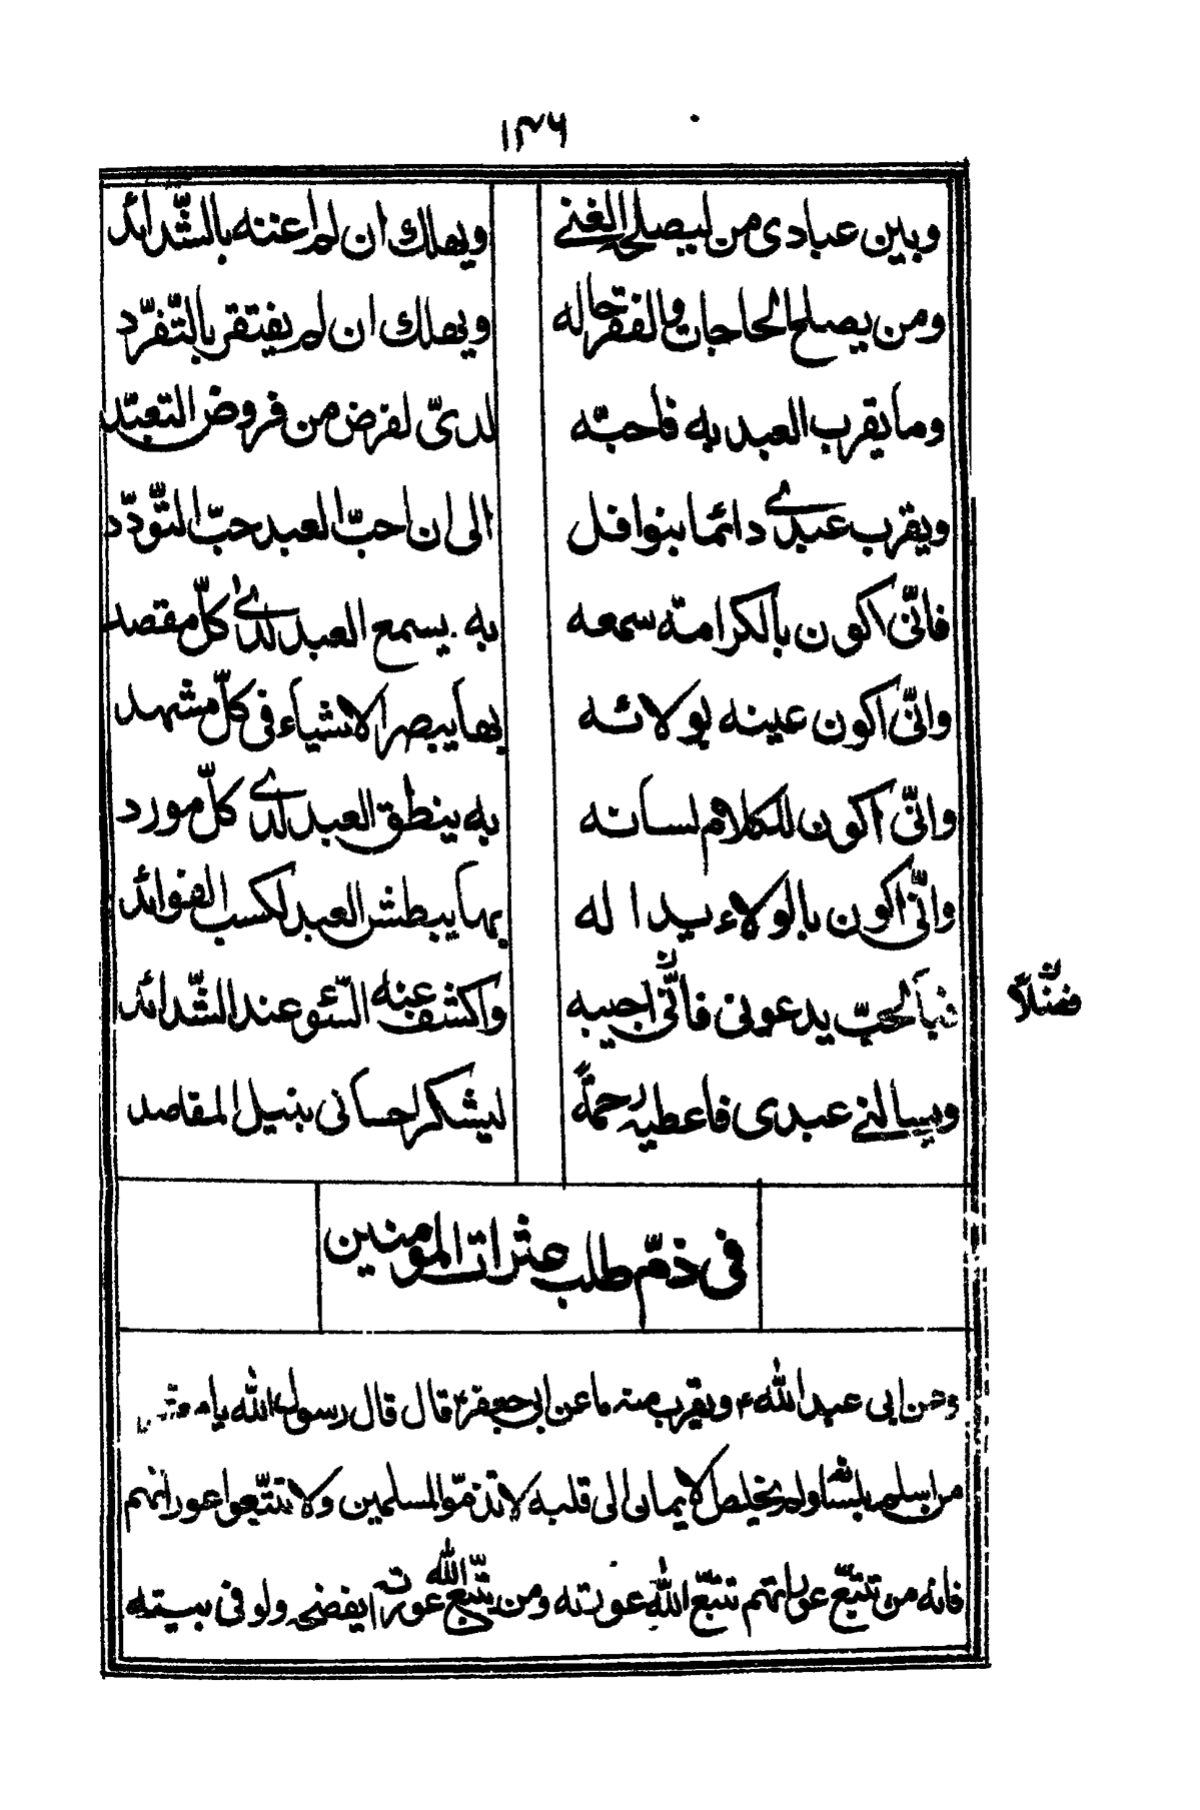 ١٤٦
وبين عبادى من ليصلح الغنى ويهلك ان لم اعنته بالشّدائد
ومن يصلح الحاجات والفقر حاله ويهلك ان لم يفتقر بالتّفرّد
وما يقرب العبد به فاحبّه لدىّ لفرض من فروض التعبّد
ويقرب عبدى دائما بنوافل الى ان احبّ العبد حبّ التّودّد
فانّى اكون بالكرامة سمعه به يسمع العبد لدى كلّ مقصد
وانّى اكون عينه بولائه بها يبصر الاشياء فى كلّ مشهد
وانّى اكون للكلام لسانه به ينطق العبد لدى كلّ مورد
وانّى اكون بالولاء يدا له بها يبطش العبد لكسب الفوائد
الحبّ يدعونى فانّى اجيبه واكشف عنه السّوء عند الشّدائد
ويسالنى عبدى فاعطيه رحمة ليشكر احسانى بنيل المقاصد
فى ذمّ طلب عثرات المومنين
وعن ابى عبد الله ء ويقرب منه ما عن ابى جعفر ء قال قال رسول الله يا معشر
من اسلم بلسانه ولم يخلص الايمان الى قلبه لا تذمّوا المسلمين ولا تتبّعوا عوراتهم
فانه من تتبّع عوراتهم تتبّع الله عورته ومن تتبّع الله عورته يفضحه ولو فى بيته